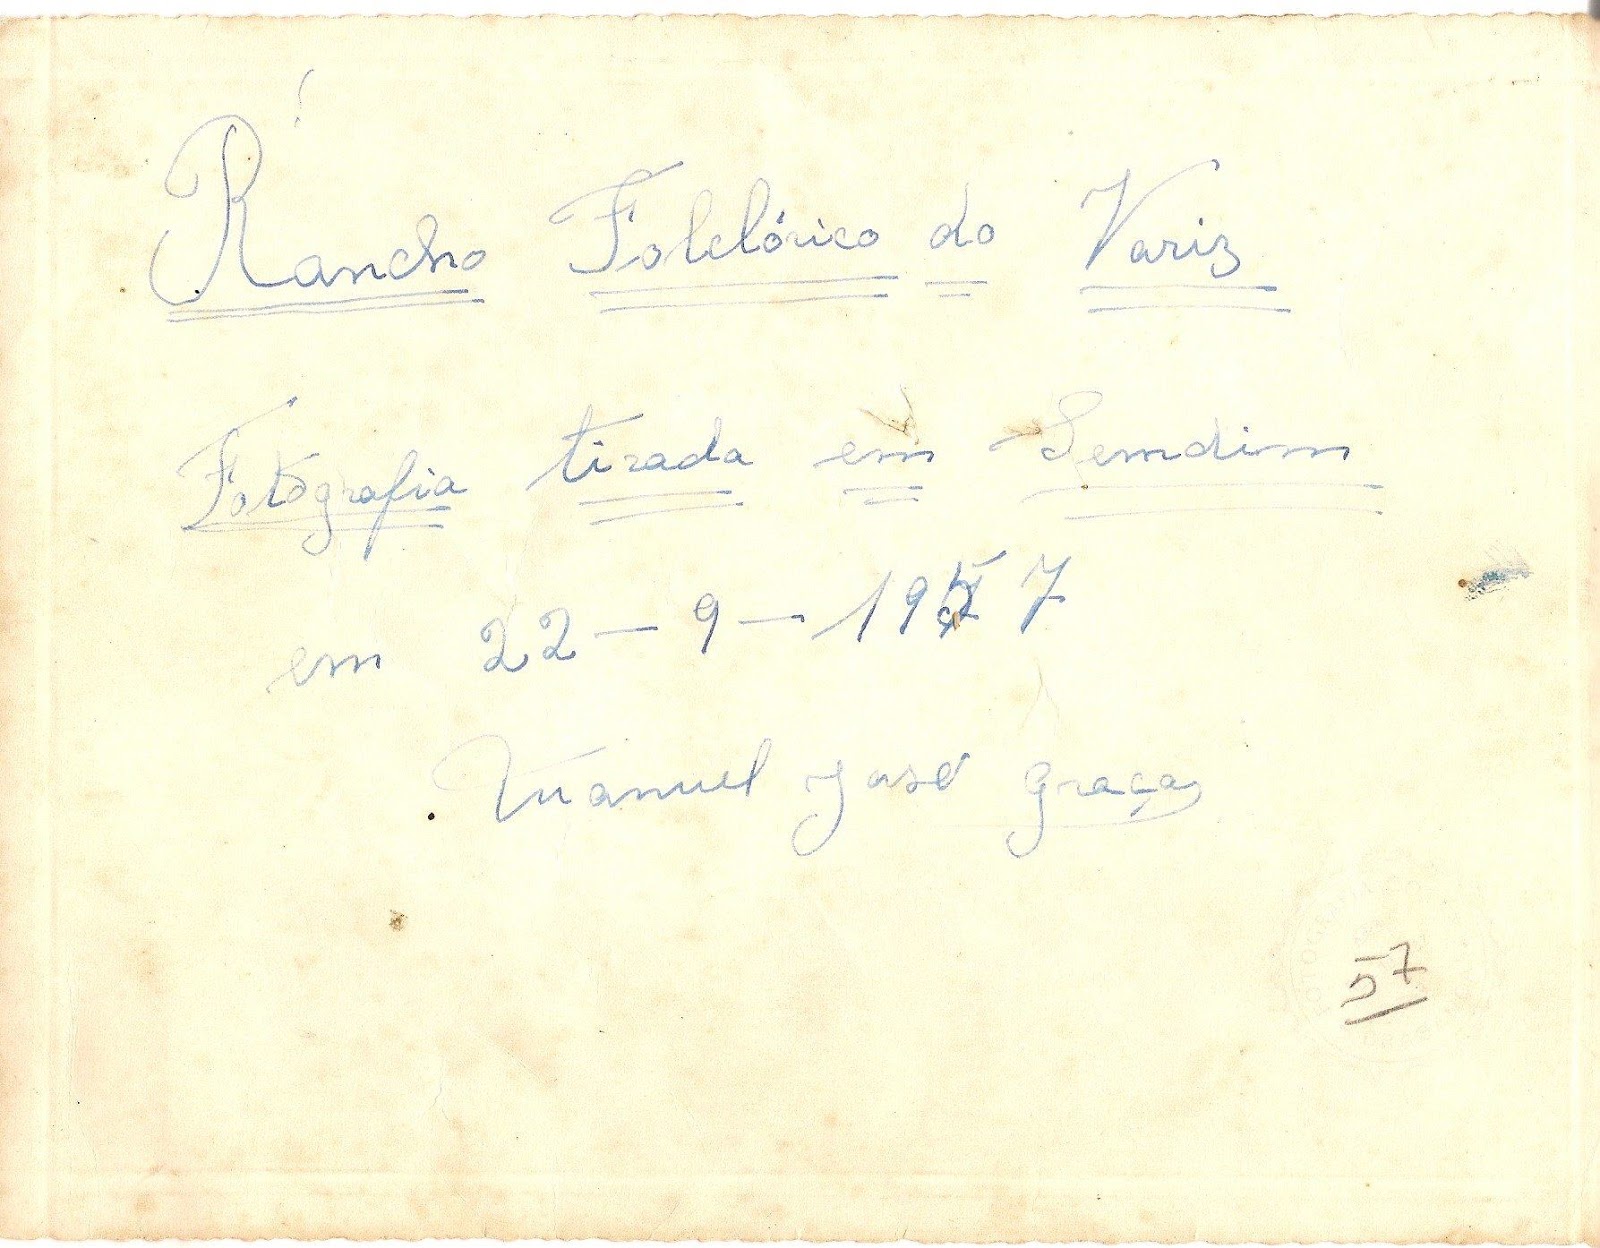 Rancho Folclórico do Variz
Fotografia tirada em Semdim
em 22-9-1957
Manuel José Graça
57